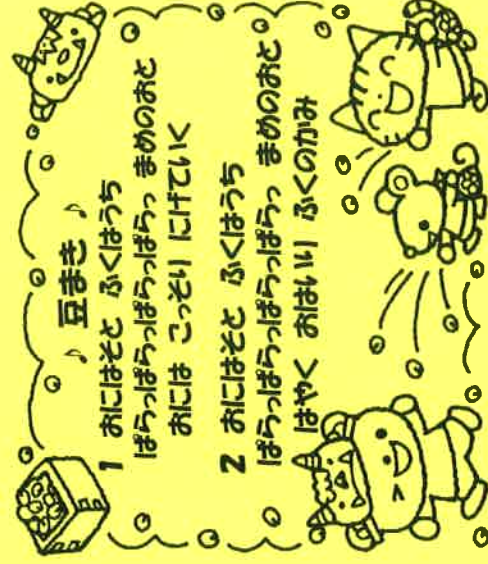 ♪ 豆まき ♪
1 おにはそと ふくはうち
ぱらっぱらっぱらっぱらっ まめのおと
おには こっそり にげていく
2 おにはそと ふくはうち
ぱらっぱらっぱらっぱらっ まめのおと
はやく おはいり ふくのかみ